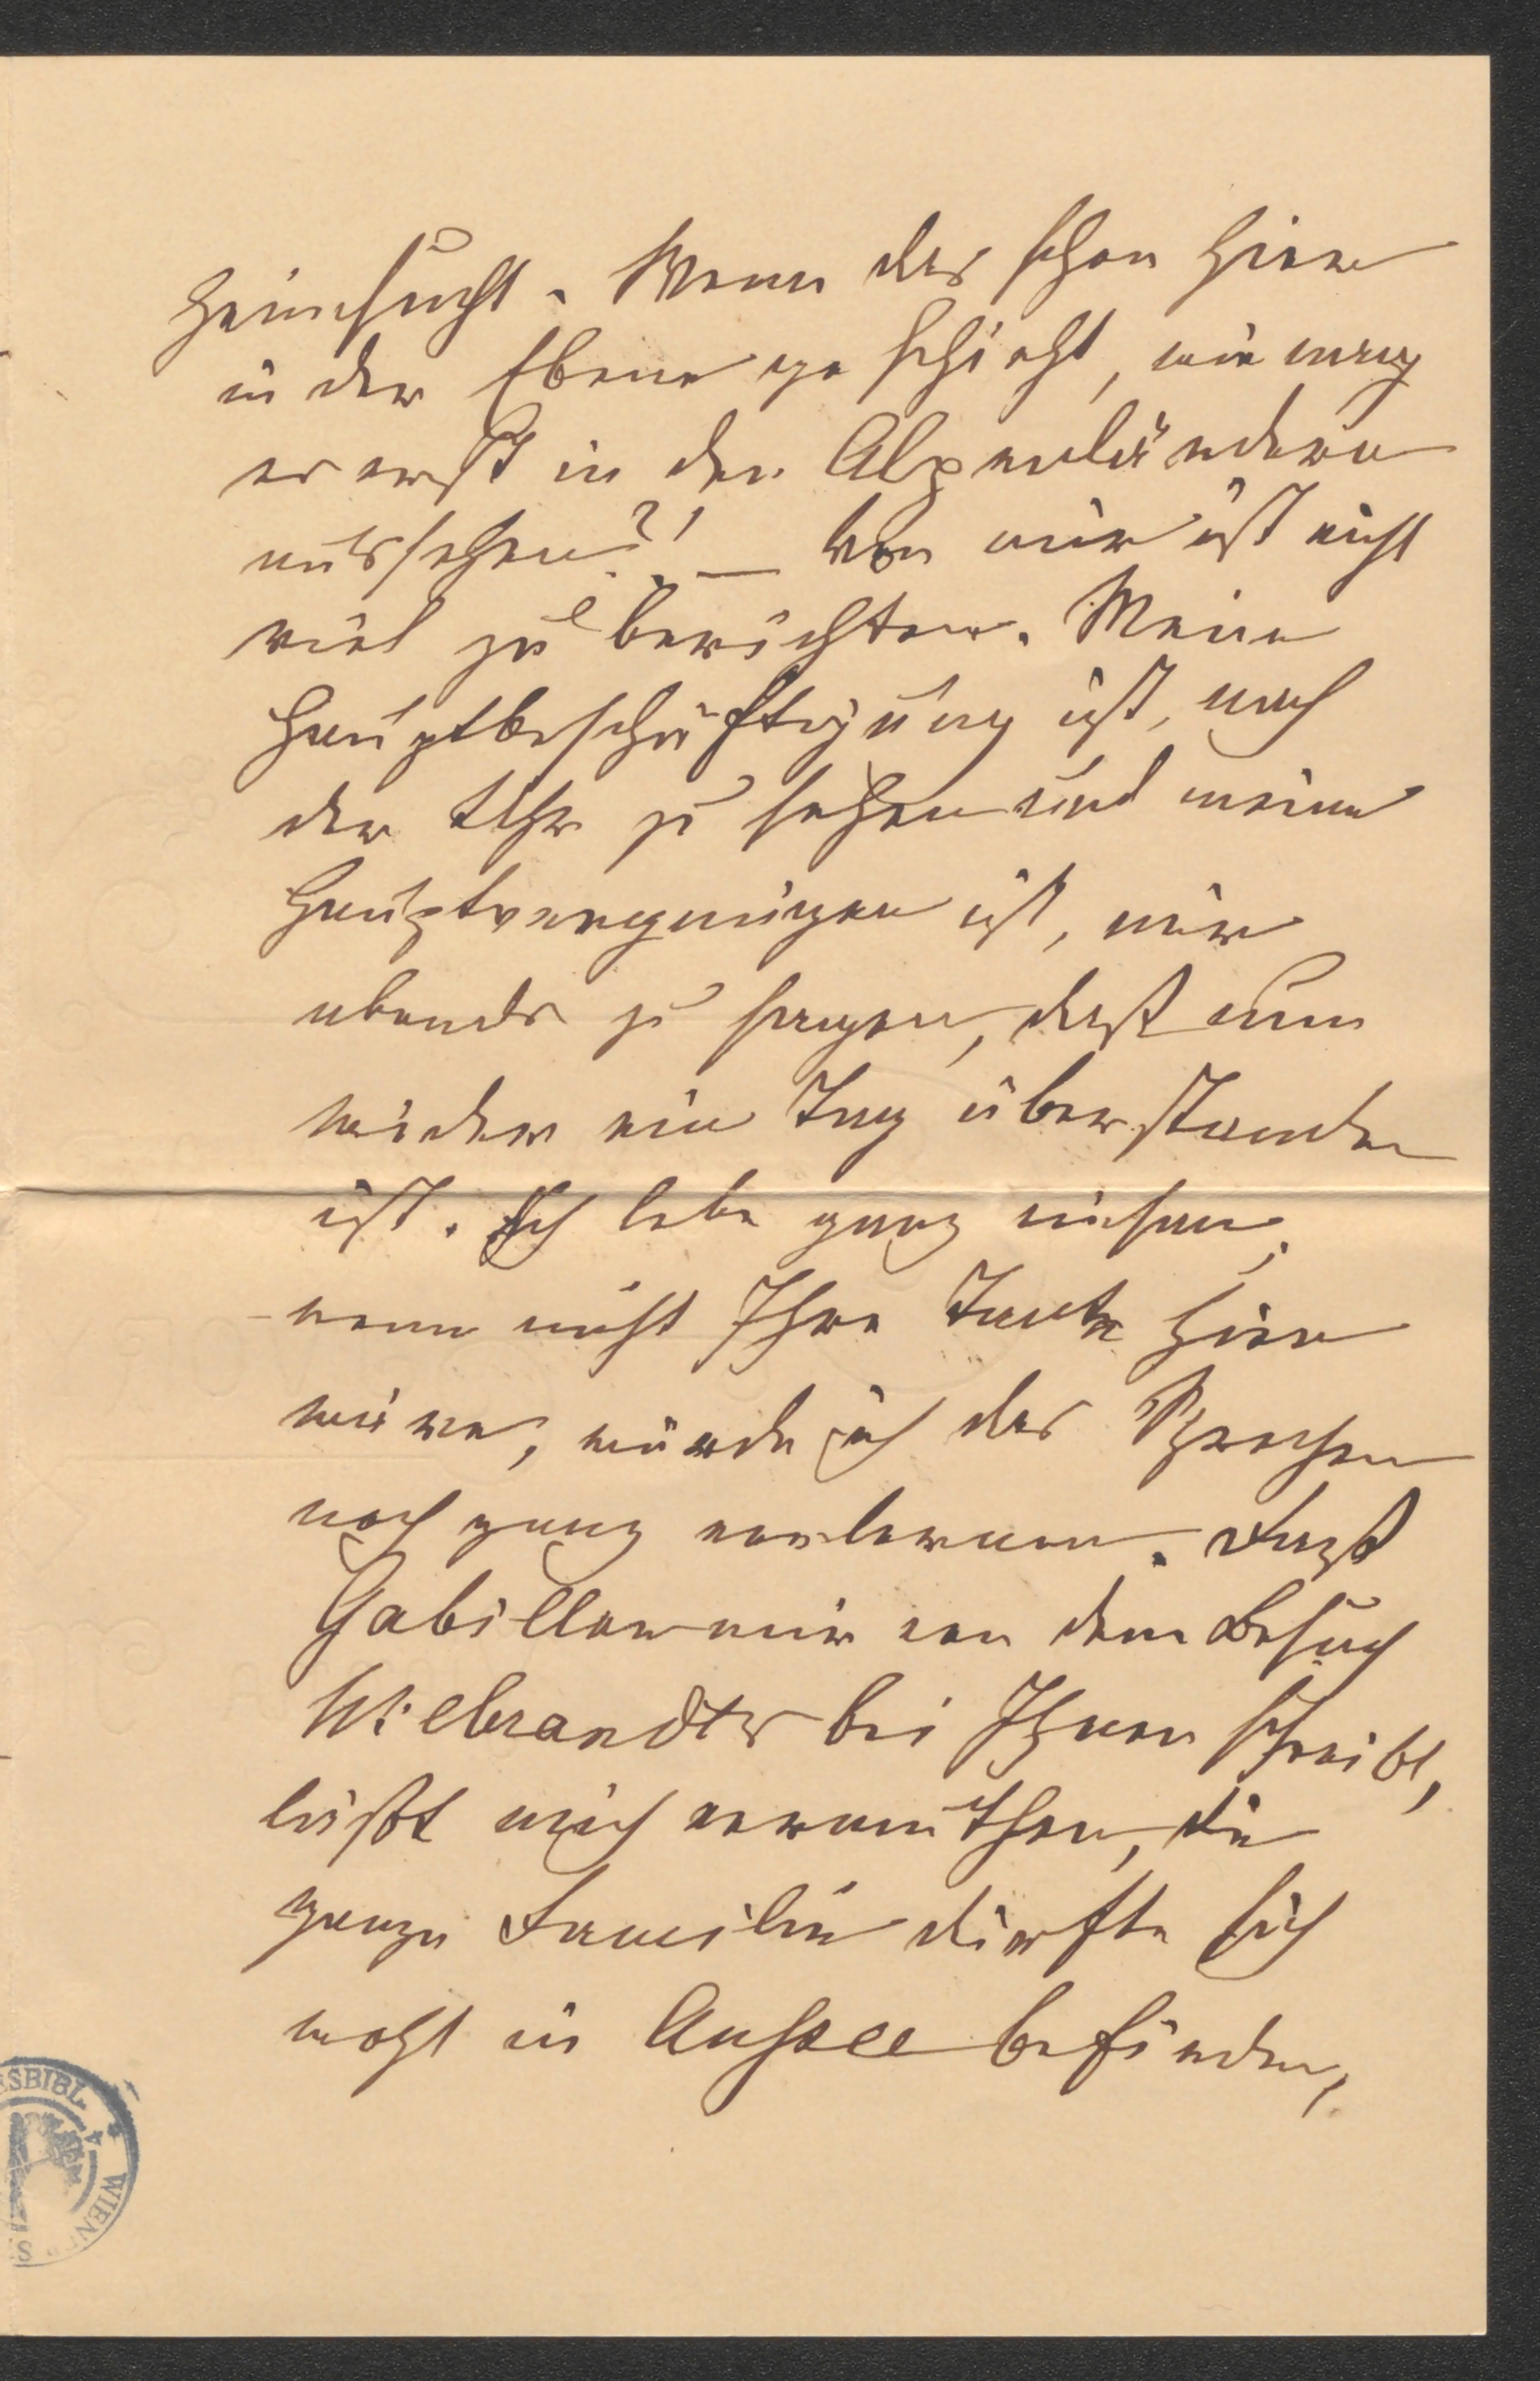 heimsucht. Wenn das schon hier
in der Ebene geschieht, wie mag
es erst in den Alpenländern
aussehen?! — Von mir ist nicht
viel zu berichten. Meine
Hauptbeschäftigung ist, nach
der Uhr zu sehen und mein
Hauptvergnügen ist, mir
abends zu sagen, daß nun
wieder ein Tag überstanden
ist. Ich lebe ganz einsam;
wenn nicht Ihre Tante hier
wäre, würde ich das Sprechen
noch ganz verlernen. Daß
Gabillon mir von dem Besuch
Wilbrandts bei Ihnen schreibt,
läßt mich vermuthen, die
ganze Familie dürfte sich
wohl in Aussee befinden,
SBIBL.
WIENER